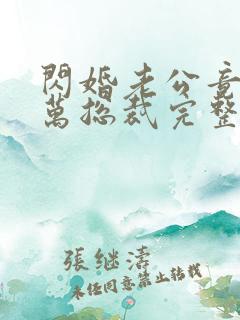 閃婚老公竟
萬總裁完整
張继濤
未经同意禁止转载